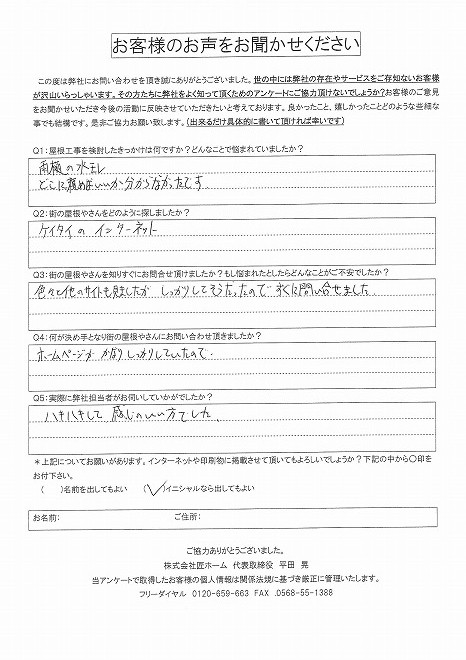 お客様のお声をお聞かせください
この度は弊社にお問い合わせを頂き誠にありがとうございました。世の中には弊社の存在やサービスをご存知ないお客様
が沢山いらっしゃいます。その方たちに弊社をよく知って頂くためのアンケートにご協力頂けないでしょうか？お客様のご意見
をお聞かせいただき今後の活動に反映させていただきたいと考えております。良かったこと、嬉しかったことどのような些細な
事でも結構です。是非ご協力お願い致します。（出来るだけ具体的に書いて頂ければ幸いです）
Q1：屋根工事を検討したきっかけは何ですか？どんなことで悩まれていましたか？
雨樋の水モレ
どこに頼めばいいか分からなかったです
Q2：街の屋根やさんをどのように探しましたか？
ケイタイの インターネット
Q3：街の屋根やさんを知りすぐにお問合せ頂けましたか？もし悩まれたとしたらどんなことがご不安でしたか？
色々と他のサイトも見ましたが しっかりしてそうだったので すぐに問い合せました。
Q4：何が決め手となり街の屋根やさんにお問い合わせ頂きましたか？
ホームページが かなり しっかりしていたので。
Q5：実際に弊社担当者がお伺いしていかがでしたか？
ハキハキして 感じのいい方でした。
＊上記についてお願いがあります。インターネットや印刷物に掲載させて頂いてもよろしいでしょうか？下記の中から〇印を
お付下さい。
（ ）名前を出してもよい （✓）イニシャルなら出してもよい
お名前： ご住所：
ご協力ありがとうございました。
株式会社匠ホーム 代表取締役 平田 晃
当アンケートで取得したお客様の個人情報は関係法規に基づき厳正に管理いたします。
フリーダイヤル 0120-659-663 FAX .0568-55-1388